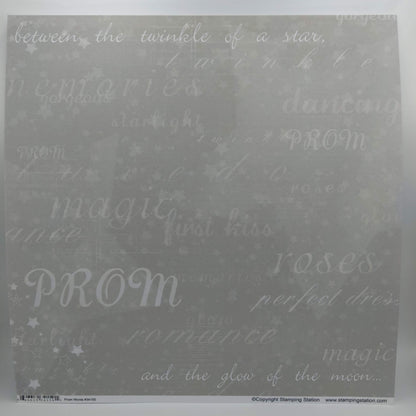 gorgeous
between the twinkle of a star,
twinkle
memories
gorgeous
dancing
starlight
PROM
PROM
tuxedo
roses
magic
first kiss
romance
roses
memories
PROM
perfect dress
romance
starlight
magic
and the glow of the moon...
©Copyright Stamping Station
www.stampingstation.com